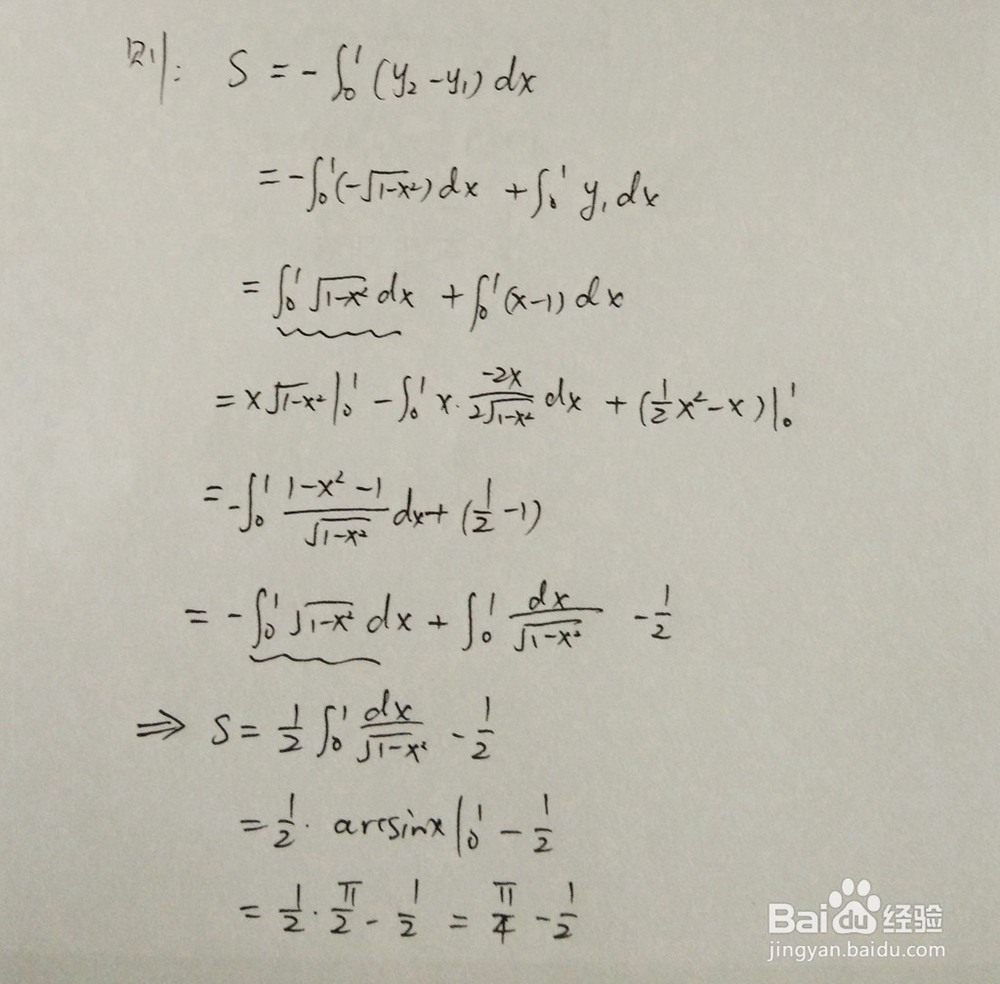 则: S = -∫₀¹ (y₂ - y₁) dx
= -∫₀¹ (-√(1-x²)) dx + ∫₀¹ y₁ dx
= ∫₀¹ √(1-x²) dx + ∫₀¹ (x-1) dx
= x√(1-x²) |₀¹ - ∫₀¹ x · (-2x)/(2√(1-x²)) dx + (1/2 x² - x) |₀¹
= -∫₀¹ (1-x²-1)/√(1-x²) dx + (1/2 - 1)
= -∫₀¹ √(1-x²) dx + ∫₀¹ dx/√(1-x²) - 1/2
⇒ S = 1/2 ∫₀¹ dx/√(1-x²) - 1/2
= 1/2 · arcsinx |₀¹ - 1/2
= 1/2 · π/2 - 1/2 = π/4 - 1/2
Baidu 经验
jingyan.baidu.com